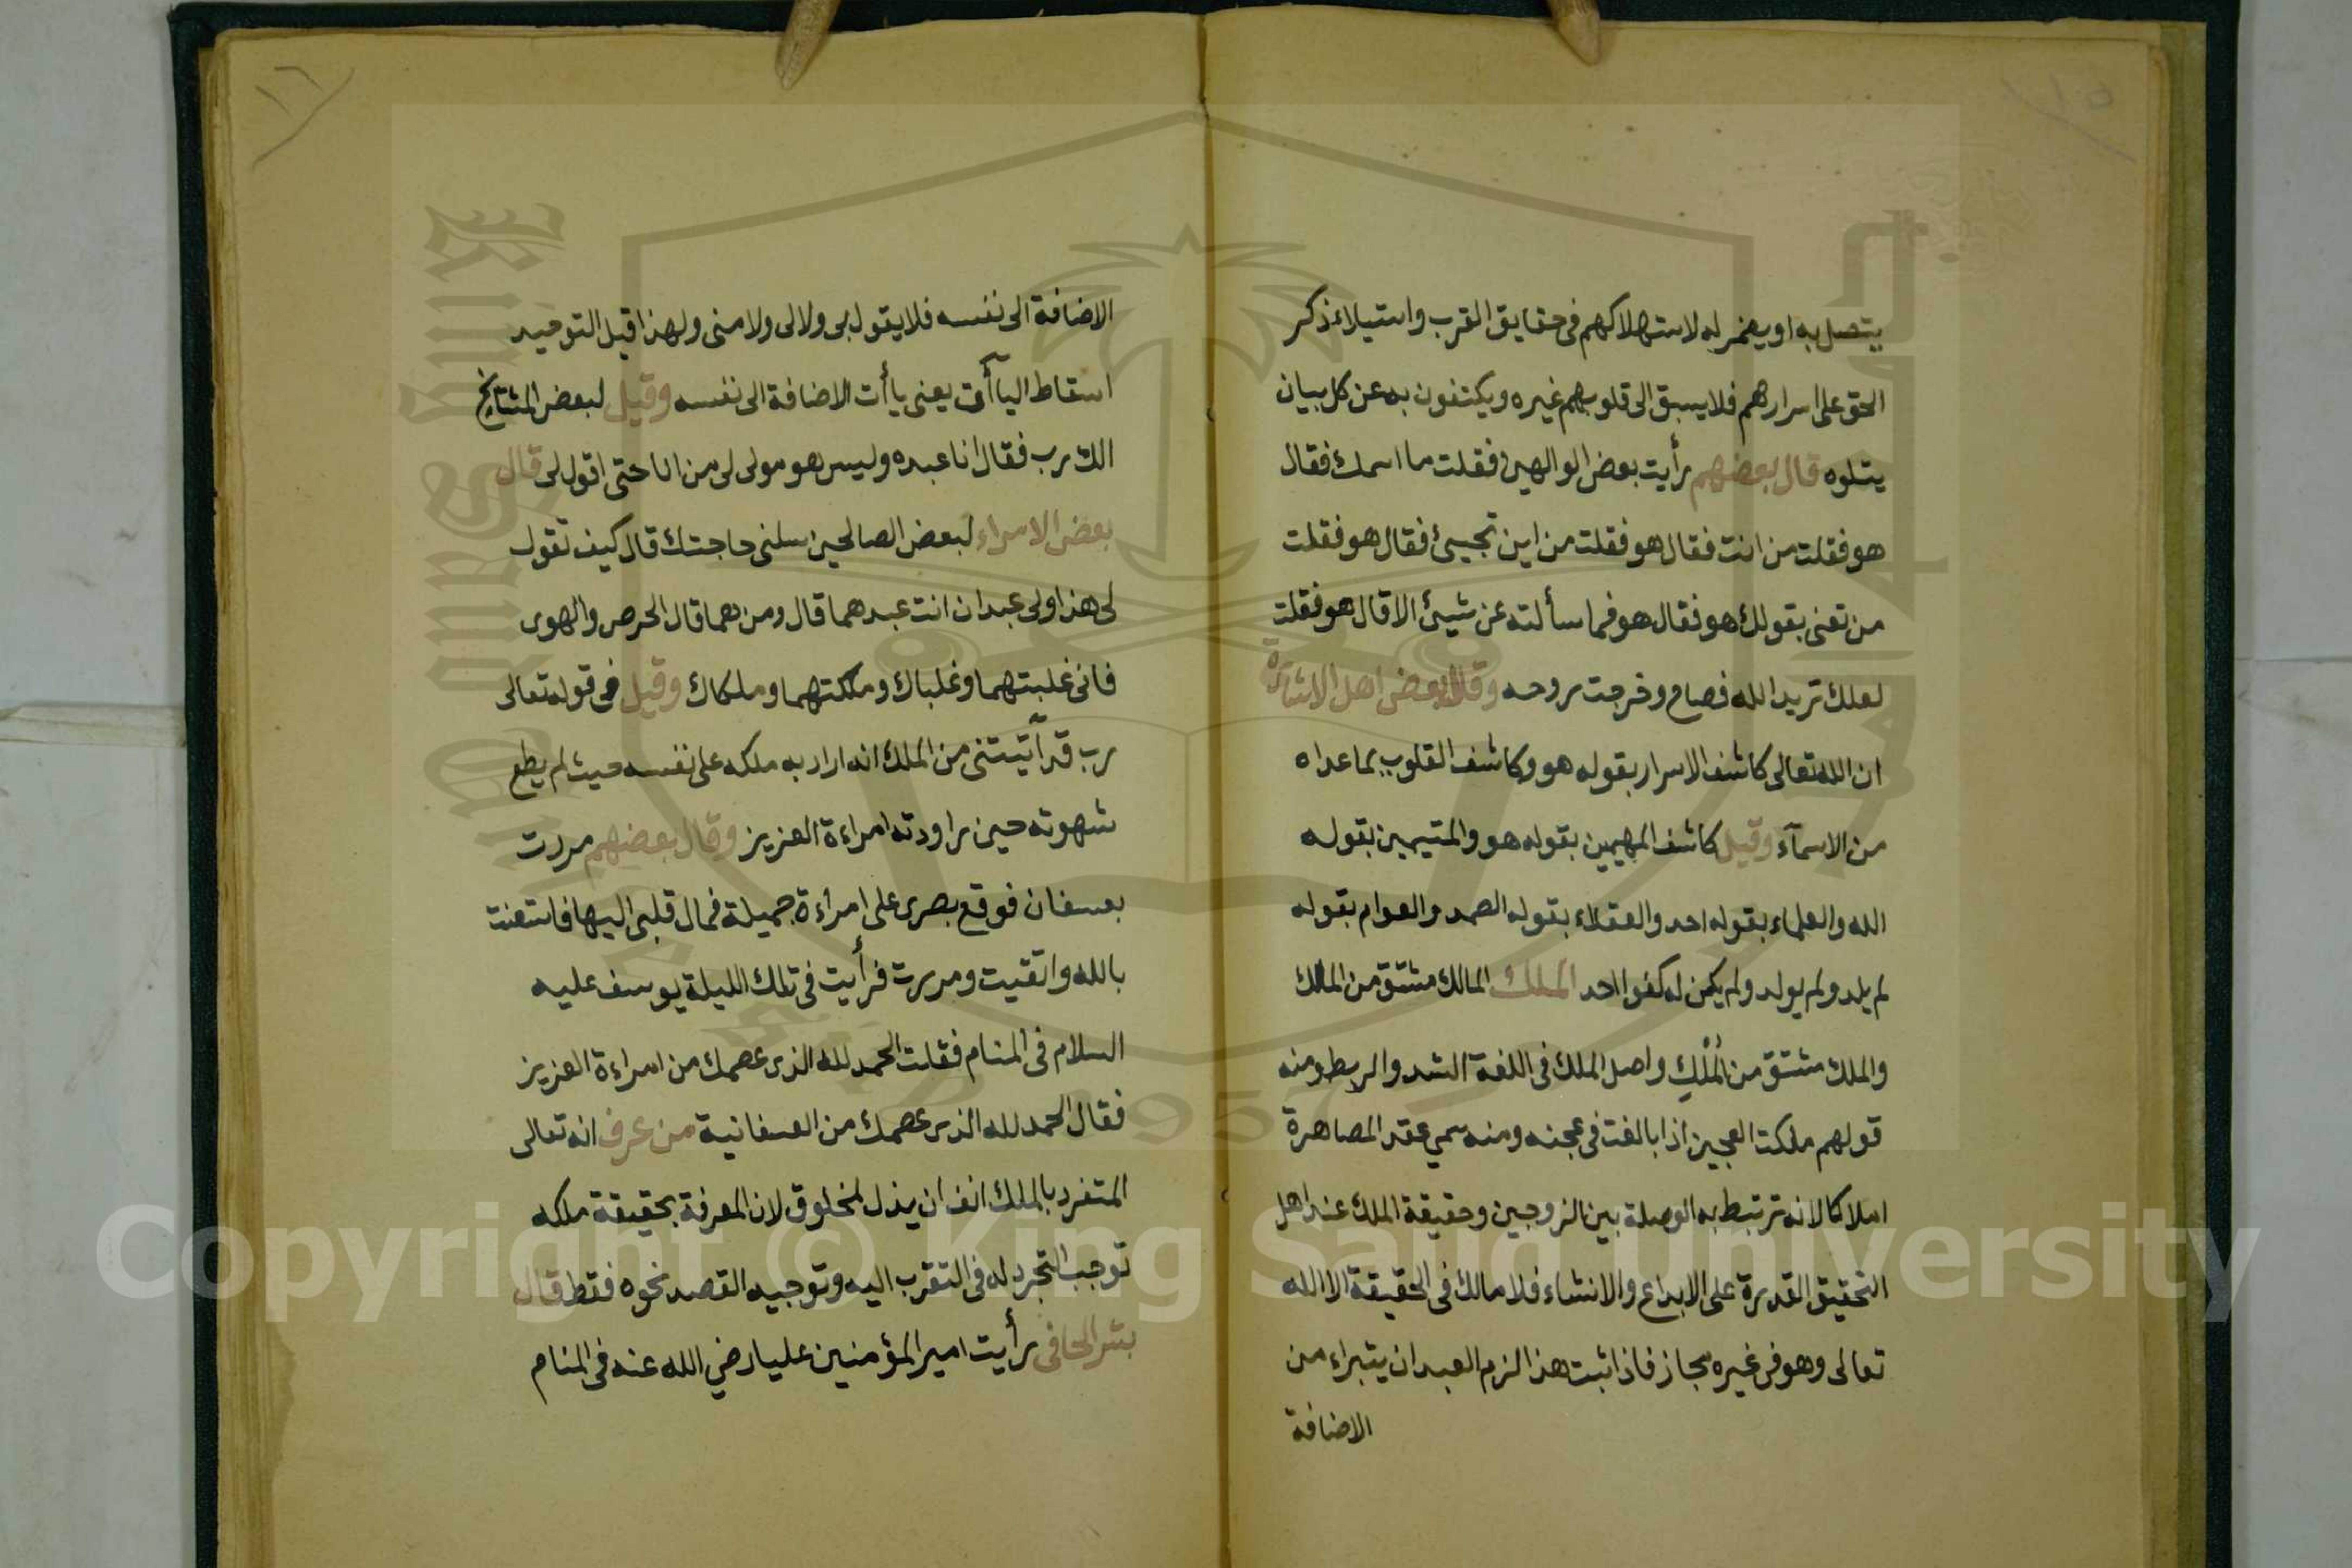 ١٥
يتصل به او يضمر له لاستهلاكهم فى حقايق القرب واستيلاء ذكر
الحق على اسرارهم فلا يسبق الى قلوبهم غيره ويكتفون به عن كل بيان
يتلوه قال بعضهم رأيت بعض الوالهين فقلت ما اسمك فقال
هو فقلت من انت فقال هو فقلت من اين تجيئ فقال هو فقلت
من تعنى بقولك هو فقال هو فما سألته عن شيئ الا قال هو فقلت
لعلك تريد الله فصاح وخرجت روحه وقال بعض اهل الاشارة
ان الله تعالى كاشف الاسرار بقوله هو وكاشف القلوب بما عداه
من الاسمآء وقيل كاشف المهيمين بقوله هو والمتيمين بقوله
الله والعلماء بقوله احد والعقلاء بقوله الصمد والعوام بقوله
لم يلد ولم يولد ولم يكن له كفوا احد الملك المالك مشتق من المالك
والملك مشتق من المُلْكِ واصل الملك فى اللغة الشد والربط ومنه
قولهم ملكت العجين اذا بالغت فى عجنه ومنه سمي عقد المصاهرة
املاكا لانه ترتبط به الوصلة بين الزوجين وحقيقة الملك عند اهل
التحقيق القدرة على الابداع والانشاء فلا مالك فى الحقيقة الا الله
تعالى وهو فى غيره مجاز فاذا ثبت هذا لزم العبد ان يتبراء من
الاضافة
١٦
الاضافة الى نفسه فلا يقول بى ولا لى ولا منى ولهذا قيل التوحيد
اسقاط اليآآت يعنى يا أت الاضافة الى نفسه وقيل لبعض المشايخ
الك رب فقال انا عبده وليس هو مولى لى من انا حتى اقول لى قال
بعض الامراء لبعض الصالحين سلنى حاجتك قال كيف تقول
لى هذا ولى عبدان انت عبدهما قال ومن هما قال الحرص والهوى
فانى غلبتهما وغلباك وملكتهما وملكاك وقيل فى قوله تعالى
رب قد آتيتنى من الملك انه اراد به ملكه على نفسه حيث لم يطع
شهوته حين راودته امراءة العزيز وقال بعضهم مررت
بعسفان فوقع بصرى على امراءة جميلة فمال قلبى اليها فاستعنت
بالله واتقيت ومررت فرأيت فى تلك الليلة يوسف عليه
السلام فى المنام فقلت الحمد لله الذى عصمك من امراءة العزيز
فقال الحمد لله الذى عصمك من العسفانية من عرف انه تعالى
المتفرد بالملك انف ان يذل لمخلوق لان المعرفة بحقيقة ملكه
توجب التجرد له فى التقرب اليه وتوجيه القصد نحوه فقط قال
بشر الحافى رأيت امير المؤمنين عليا رضي الله عنه فى المنام
Copyright © King Saud University
1957